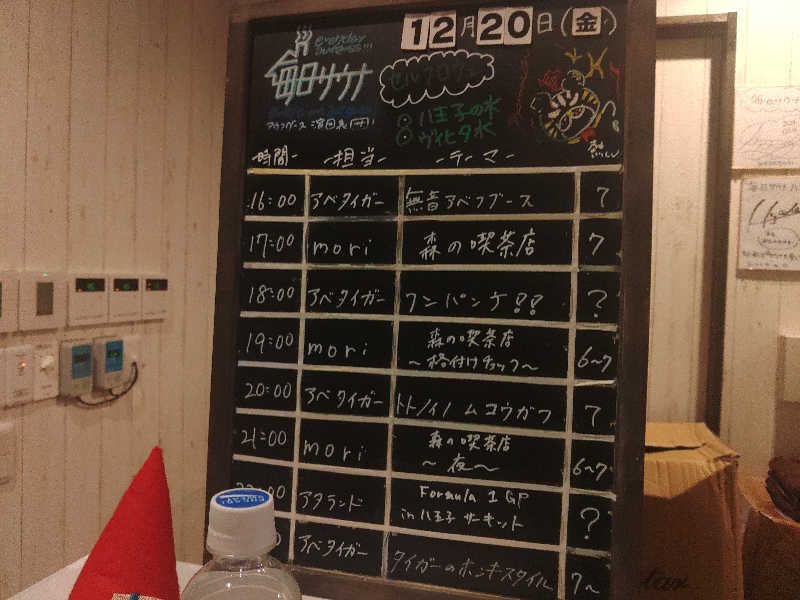 everyday
毎日サウナ
12月20日(金)
セルフロウリュ
八王子の水
ヴィヒタ水
時間 - 担当 - - テーマ - 熱
16:00 アベタイガー 無音アベフブース 7
17:00 mori 森の喫茶店 7
18:00 アベタイガー ワンパンケ!! ?
19:00 mori 森の喫茶店
~格付けチェック~ 6~7
20:00 アベタイガー トトノイノムコウガワ 7
21:00 mori 森の喫茶店
~夜~ 6~7
00 アタランド Formula 1 GP
in 八王子サーキット ?
アベタイガー タイガーのホンキスタイル 7~